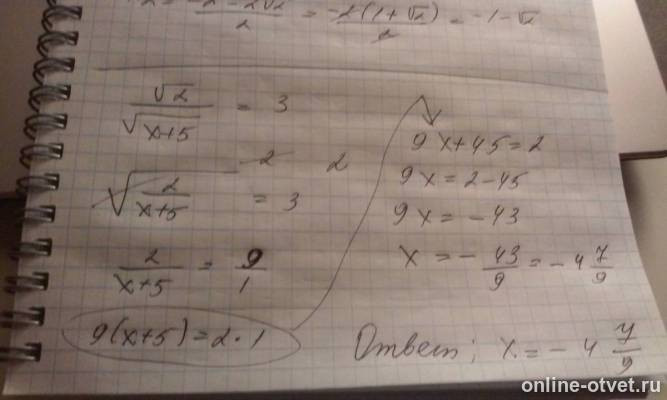 x₂ = (-2 - 2√2)/2 = -2(1+√2)/2 = -1-√2
√2/√(x+5) = 3
√(2/(x+5))² = 3²
2/(x+5) = 9/1
9(x+5) = 2·1
9x+45=2
9x=2-45
9x=-43
x = -43/9 = -4 7/9
Ответ; x = -4 7/9
online-otvet.ru